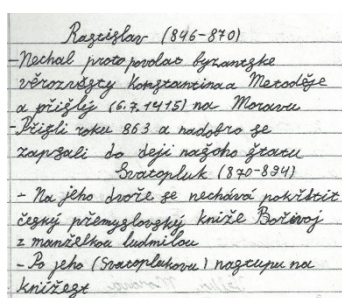 Rastislav (846-870)
-Nechal proto povolat byzantske
věrozvěsty Konstantina a Metoděje
a přišly (6.7.1415) na Moravu
-Přišli roku 863 a nadobro se
zapsali do deji našoho štatu
Svatopluk (870-894)
- Na jeho dvoře se nechává pokřstit
český přemyslovský kniže Bořivoj
z manželkou ludmilou
- Po jeho (Svatoplukovu) nastupu na
knížest